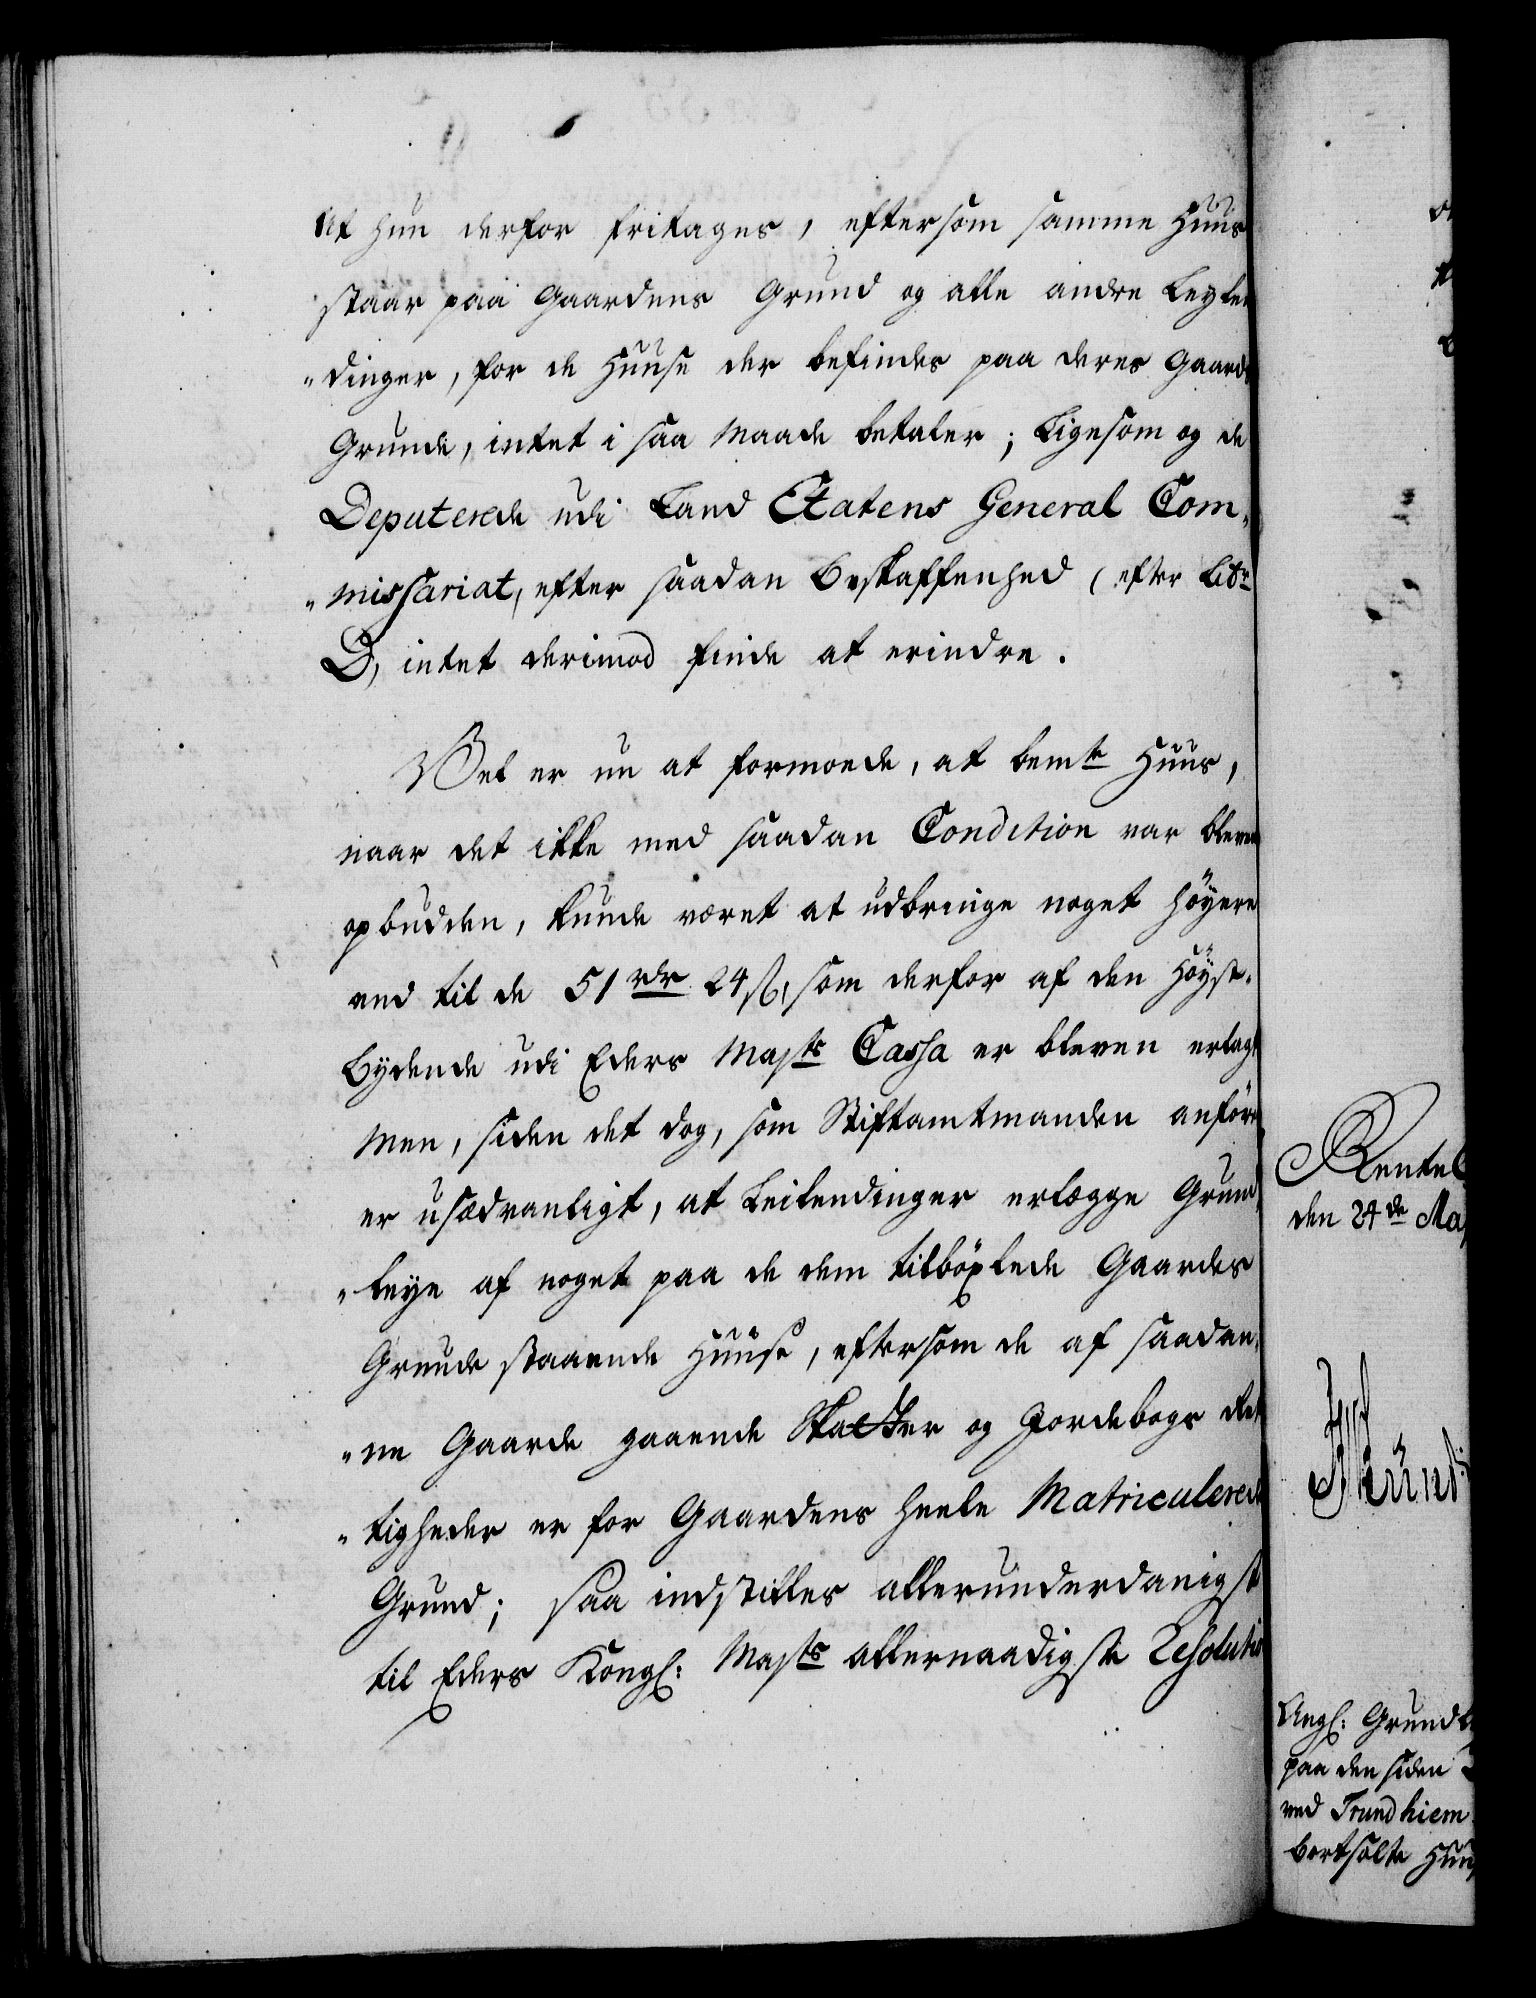 at hun derfor fritages, eftersom samme Huus
staar paa Gaardens Grund og alle andre Leylen
„dinger, for de Huuse der befindes paa deres Gaards
Grunde, intet i saa Maade betaler; Ligesom og de
Deputerede udi Land Etatens General Com„
„missariat, efter saadan Beskaffenhed (efter Litr
D, intet derimod finde at erindre.
Vel er nu at formode, at bemte Huus,
naar det ikke med saadan Condition var bleven
opbudden, kunde været at udbringe noget höyere
end til de 51 rdr 24 ß, som derfor af den Höyst„
Bydende udi Eders Majts Cassa er bleven erlagt
Men, siden det dog, som Stiftamtmanden anförer
er usædvanligt, at Leilendinger erlægge Grund
„leye af noget paa de dem tilböxlede Gaardes
Grunde staaende Huuse, eftersom de af saadan„
„ne Gaarde gaaende Skatter og Jordebogs Ret
„tigheder er for Gaardens heele Matriculerede
Grund; saa indstilles allerunderdanigst
til Eders Kongl: Majts allernaadigste Resolution
Rente
den 24de Ma
Angl: Grundle
paa den siden
ved Trundhiem
bortsolte Huus